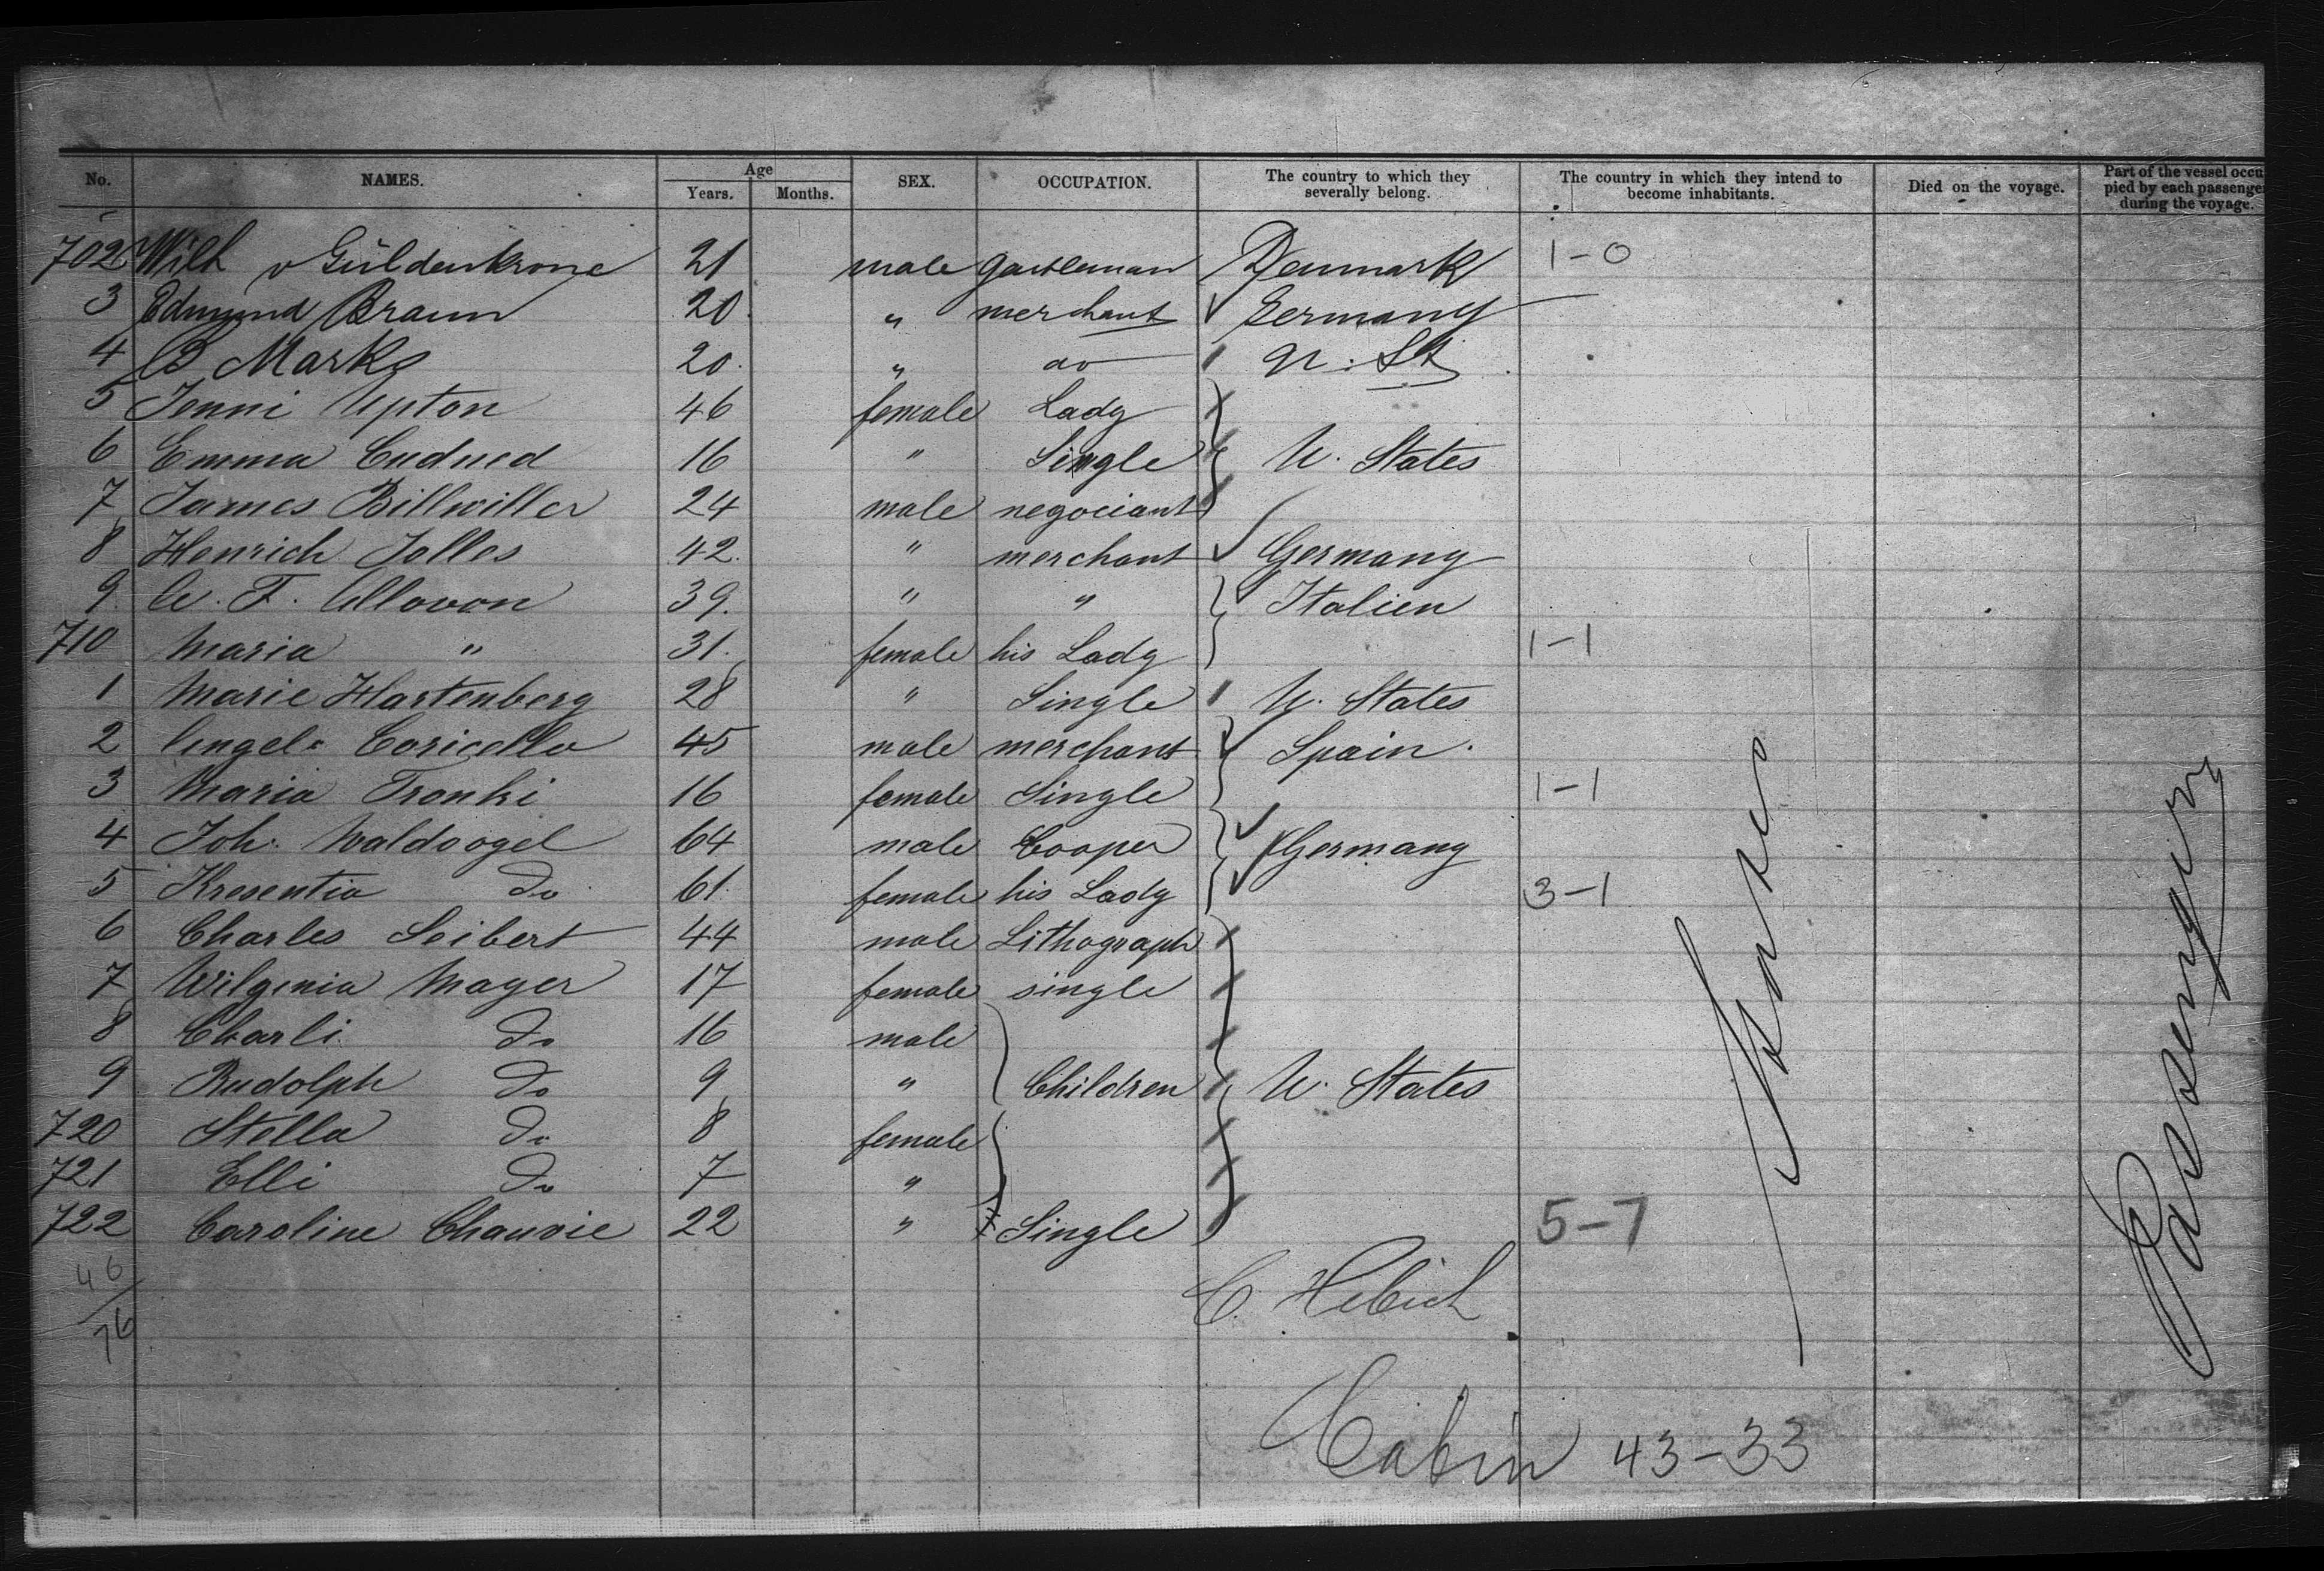 No. NAMES. Age Years. Months. SEX. OCCUPATION. The country to which they severally belong. The country in which they intend to become inhabitants. Died on the voyage. Part of the vessel occu pied by each passenger during the voyage.
702 Wilh v Güldenkrone 21 male gentleman Denmark 1-0
3 Edmund Braun 20 " merchant Germany
4 B Marks 20 " do U. St
5 Jenni Upton 46 female Lady
6 Emma 16 " Single U. States
7 James Billwiller 24 male negociant
8 Henrich Jolles 42 " merchant Germany
9 F. Allovon 39. " " Italien
710 Maria " 31. female his Lady 1-1
1 Marie Hartenberg 28 " Single U. States
2 Angelo Coricella 45 male merchant Spain.
3 Maria Tronki 16 female Single 1-1
4 Joh. Waldvogel 64 male Cooper Germany
5 Kresentia do 61. female his Lady 3-1
6 Charles Seibert 44 male Lithograph
7 Wilginia Mayer 17 female single
8 Charli do 16 male
9 Rudolph do 9 " Children U. States
720 Stella do 8 female
721 Elli do 7 "
722 Caroline Chauvie 22 " Single 5-7
46
76
C. Hebich
Cabin 43-33
Passengers